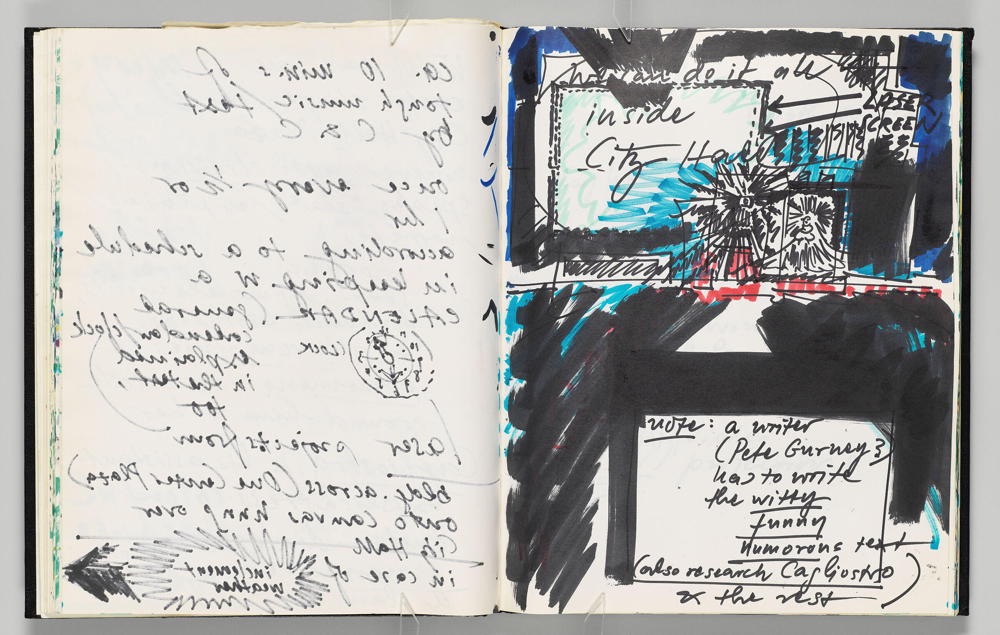 ca. 10 mins of
tough music / text
by C & C
once every ½ or
1 hr
according to a schedule
in keeping. w. a
CALENDAR (general
calendar/clock
clock explained
in the text,
too
laser projects from
bldg. across (One Center Plaza)
onto canvas hung over
City Hall
in case of inclement
weather
we can do it all
inside
City Hall
LASER
SCREEN
note: a writer
(Pete Gurney?)
has to write
the witty
funny
humorous text
(also research Cagliostro)
& the rest